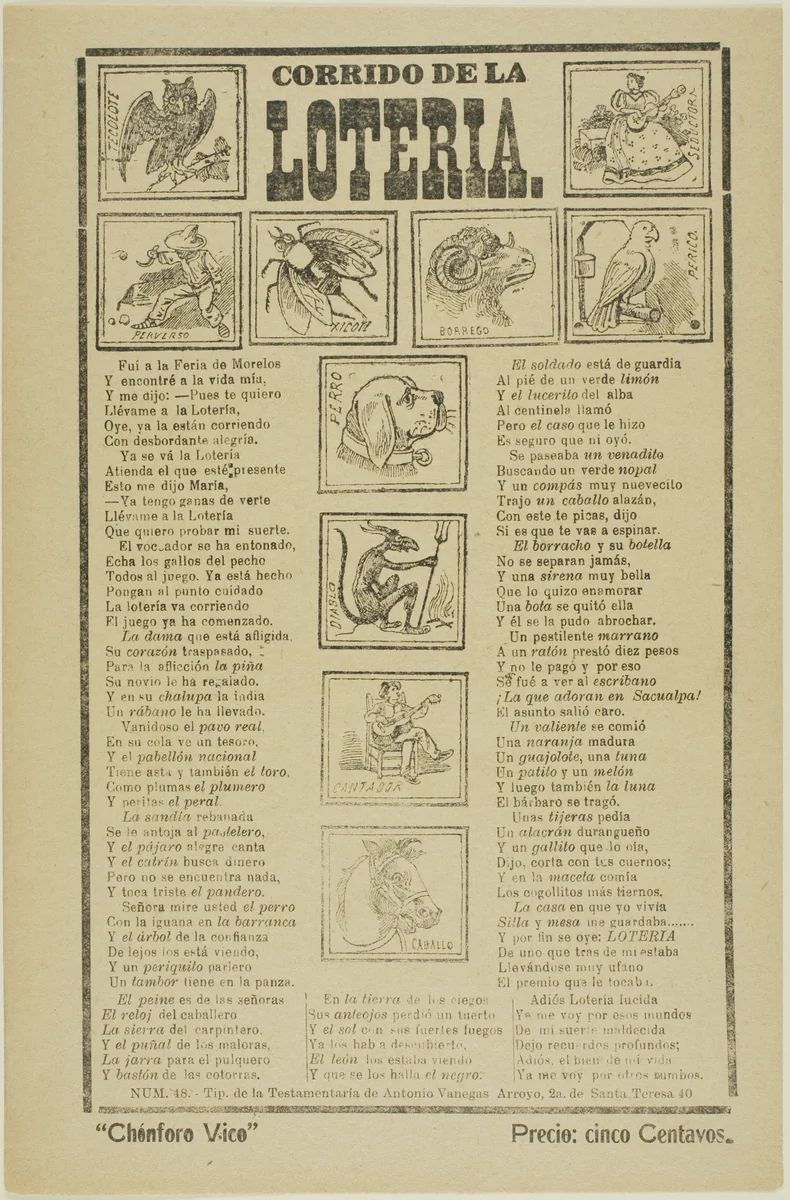 CORRIDO DE LA
LOTERIA.
TECOLOTE
SEDUCTORA
PERVERSO
XICOTE
BORREGO
PERICO.
Fuí a la Feria de Morelos
Y encontré a la vida mía,
Y me dijo: —Pues te quiero
Llévame a la Lotería,
Oye, ya la están corriendo
Con desbordante alegría.
Ya se vá la Lotería
Atienda el que esté presente
Esto me dijo María,
—Ya tengo ganas de verte
Llévame a la Lotería
Que quiero probar mi suerte.
El voceador se ha entonado,
Echa los gallos del pecho
Todos al juego. Ya está hecho
Pongan al punto cuidado
La lotería va corriendo
El juego ya ha comenzado.
La dama que está afligida,
Su corazón traspasado,
Para la aflicción la piña
Su novio le ha regalado.
Y en su chalupa la india
Un rábano le ha llevado.
Vanidoso el pavo real,
En su cola ve un tesoro,
Y el pabellón nacional
Tiene asta y también el toro,
Como plumas el plumero
Y peritas el peral.
La sandía rebanada
Se le antoja al pastelero,
Y el pájaro alegre canta
Y el catrín busca dinero
Pero no se encuentra nada,
Y toca triste el pandero.
Señora mire usted el perro
Con la iguana en la barranca
Y el árbol de la confianza
De lejos los está viendo,
Y un periquito parlero
Un tambor tiene en la panza.
PERRO
DIABLO
CANTADOR
CABALLO
El soldado está de guardia
Al pié de un verde limón
Y el lucerito del alba
Al centinela llamó
Pero el caso que le hizo
Es seguro que ni oyó.
Se paseaba un venadito
Buscando un verde nopal
Y un compás muy nuevecito
Trajo un caballo alazán,
Con este te picas, dijo
Si es que te vas a espinar.
El borracho y su botella
No se separan jamás,
Y una sirena muy bella
Que lo quizo enamorar
Una bota se quitó ella
Y él se la pudo abrochar.
Un pestilente marrano
A un ratón prestó diez pesos
Y no le pagó y por eso
Se fué a ver al escribano
¡La que adoran en Sacualpa!
El asunto salió caro.
Un valiente se comió
Una naranja madura
Un guajolote, una tuna
Un patito y un melón
Y luego también la luna
El bárbaro se tragó.
Unas tijeras pedía
Un alacrán durangueño
Y un gallito que lo oía,
Dijo, corta con tus cuernos;
Y en la maceta comía
Los cogollitos más tiernos.
La casa en que yo vivía
Silla y mesa me guardaba.......
Y por fin se oye: LOTERIA
De uno que tras de mi estaba
Llevándose muy ufano
El premio que le tocaba.
El peine es de las señoras
El reloj del caballero
La sierra del carpintero,
Y el puñal de los maloras,
La jarra para el pulquero
Y bastón de las cotorras.
En la tierra de los ciegos
Sus anteojos perdió un tuerto
Y el sol con sus fuertes fuegos
Ya los había descubierto,
El león los estaba viendo
Y que se los halla el negro.
Adiós Lotería lucida
Ya me voy por esos mundos
De mi suerte maldecida
Dejo recuerdos profundos;
Adiós, el bien de mi vida
Ya me voy por otros rumbos.
NUM. 48.- Tip. de la Testamentaría de Antonio Vanegas Arroyo, 2a. de Santa Teresa 40
"Chónforo Vico"
Precio: cinco Centavos.